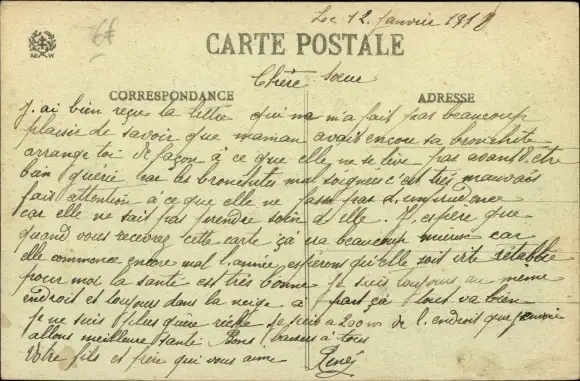 Le 12 Janvier 1918
6f
CARTE POSTALE
M. W.
Chère Sœur
CORRESPONDANCE
ADRESSE
J'ai bien reçu la lettre qui ne m'a fait pas beaucoup
plaisir de savoir que maman avait encore sa bronchite
arrange toi de façon à ce que elle ne se lève pas avant d'être
bien guerie car les bronchites mal soignées c'est très mauvais
fait attention à ce que elle ne fasse pas d'imprudence
car elle ne sait pas prendre soin d elle. J'espère que
quand vous recevrez cette carte ça ira beaucoup mieux car
elle commence encore mal l'année espérons qu'elle soit vite rétablie
pour moi la santé est très bonne je suis toujours au même
endroit et toujours dans la neige à part ça tout va bien
je ne suis plus à 200 m de l'endroit que
allons meilleure santé Bons baisers à tous
Votre fils et frère qui vous aime René